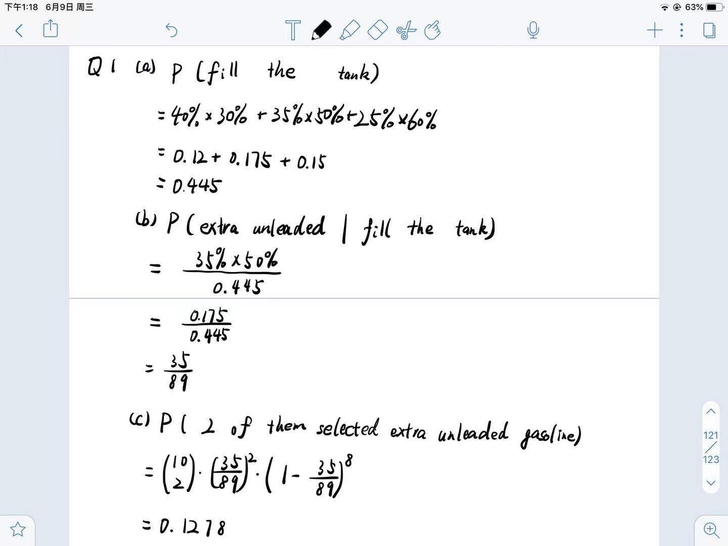 下午1:18 6月9日 周三
63%
Q1 (a) P (fill the tank)
= 40% × 30% + 35% × 50% + 25% × 60%
= 0.12 + 0.175 + 0.15
= 0.445
(b) P (extra unleaded | fill the tank)
= 35% × 50% / 0.445
= 0.175 / 0.445
= 35 / 89
(c) P ( 2 of them selected extra unleaded gasoline)
= (10 2) · (35/89)^2 · (1 - 35/89)^8
= 0.1278
121
/
123